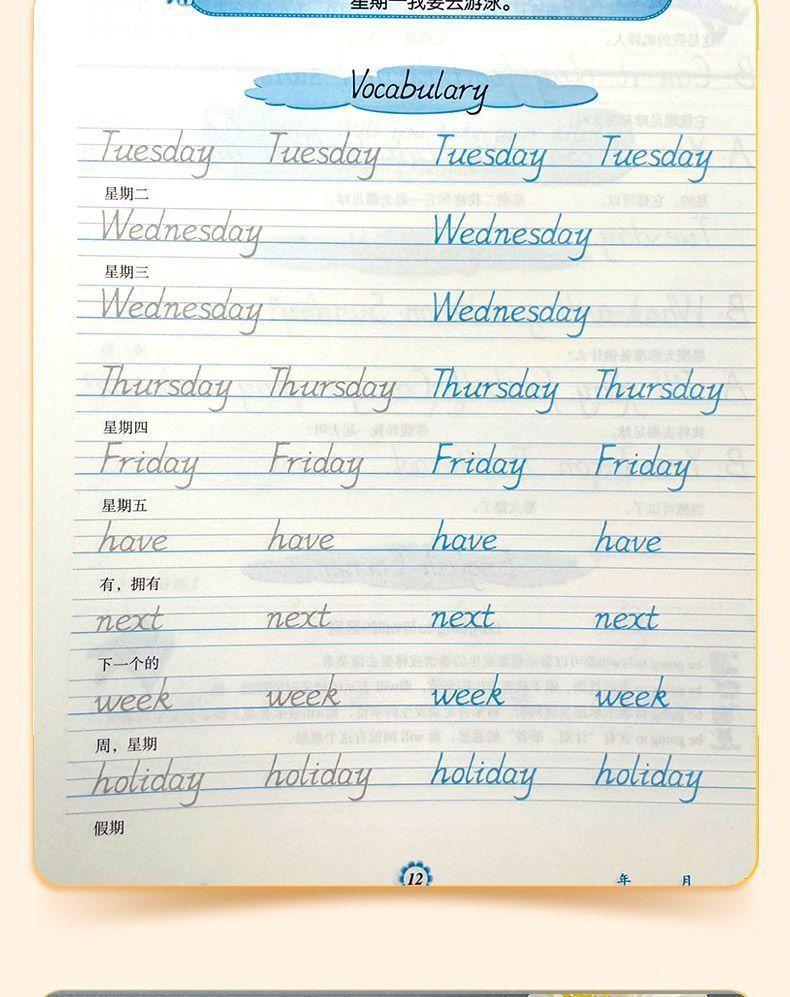 星期一我要去游泳。
Vocabulary
Tuesday Tuesday Tuesday Tuesday
星期二
Wednesday Wednesday
星期三
Wednesday Wednesday
Thursday Thursday Thursday Thursday
星期四
Friday Friday Friday Friday
星期五
have have have have
有，拥有
next next next next
下一个的
week week week week
周，星期
holiday holiday holiday holiday
假期
12
年 月